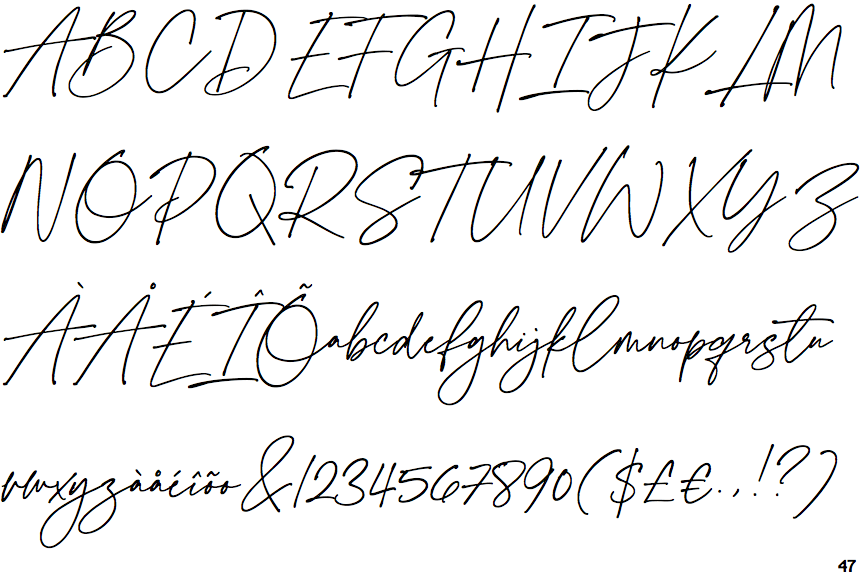 ABCDEFGHIJKLM
NOPQRSTUVWXYZ
ÀÅÉÎÕabcdefghijklmnopqrstu
vwxyzàåéîõo&1234567890($£€.,!?)
47